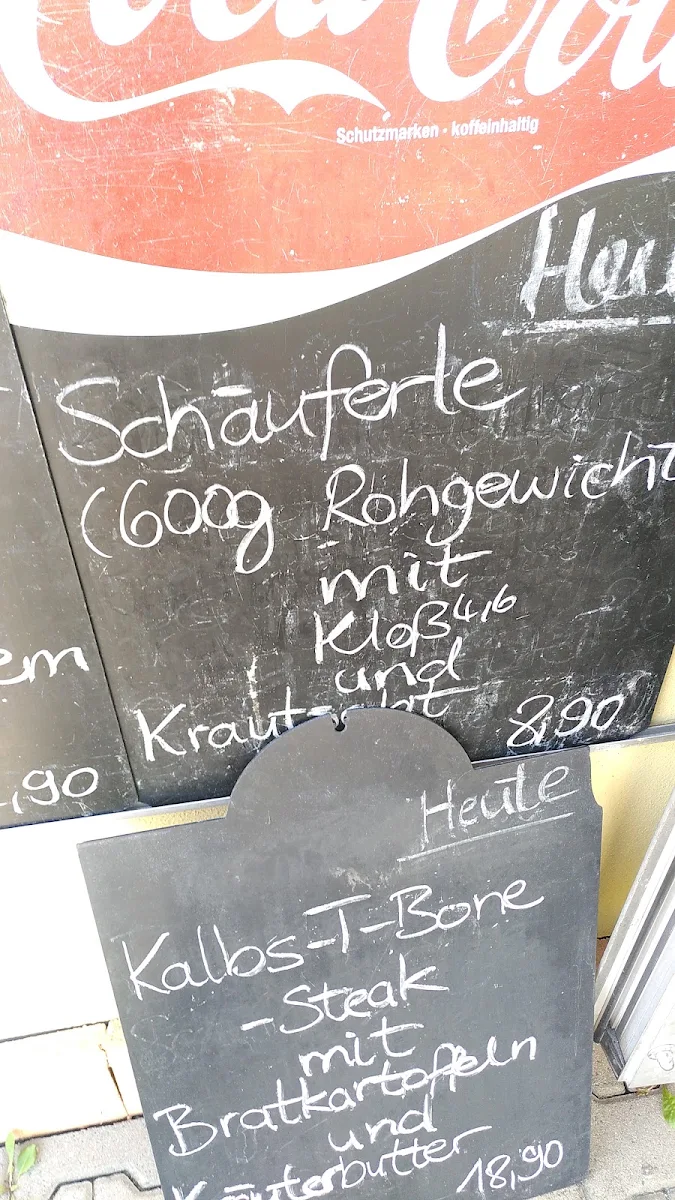 Coca-Cola
Schutzmarken · koffeinhaltig
Heu
Schäuferle
(600g Rohgewicht
mit
Kloß 4,6
und
8,90
em
,90
Heute
Kalbs-T-Bone
-Steak
mit
Bratkartoffeln
und
Kräuterbutter
18,90